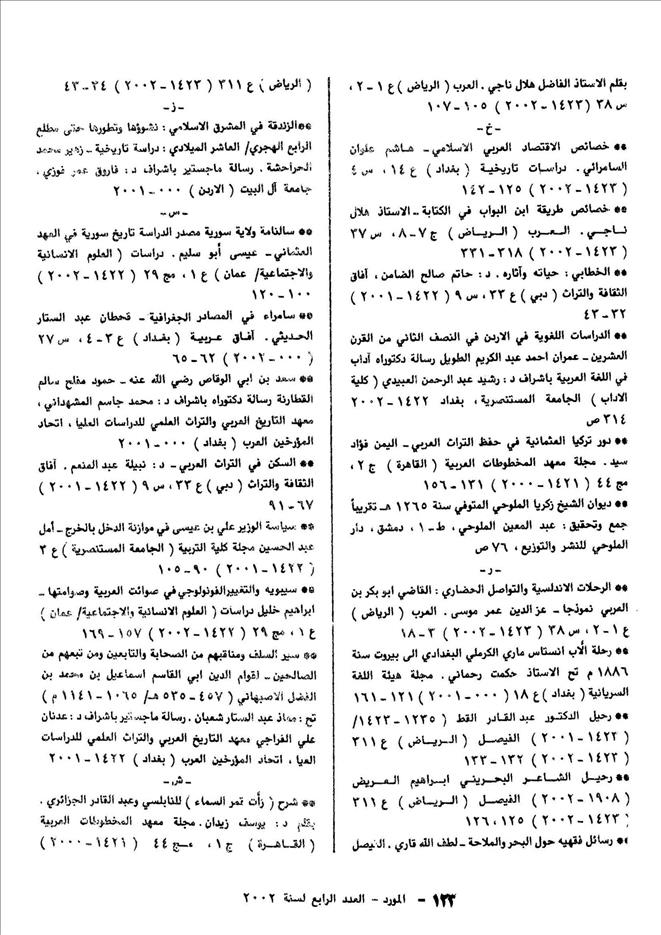 بقلم الاستاذ الفاضل هلال ناجي . العرب ( الرياض ) ع ١ - ٢ ،
س ٣٨ ( ١٤٢٣ - ٢٠٠٢ ) ١٠٥ - ١٠٧
- خ -
** خصائص الاقتصاد العربي الاسلامي - هاشم علوان
السامرائي . دراسات تاريخية ( بغداد ) ع ١٤ ، س ٤
( ١٤٢٣ - ٢٠٠٢ ) ١٢٥ - ١٤٢
** خصائص طريقة ابن البواب في الكتابة - الاستاذ هلال
ناجي . العرب ( الرياض ) ج ٧ - ٨ ، س ٣٧
( ١٤٢٣ - ٢٠٠٢ ) ٣١٨ - ٣٣١
** الخطابي : حياته وآثاره . د : حاتم صالح الضامن ، آفاق
الثقافة والتراث ( دبي ) ع ٣٣ ، س ٩ ( ١٤٢٢ - ٢٠٠١ )
٣٢ - ٤٣
** الدراسات اللغوية في الاردن في النصف الثاني من القرن
العشرين - عمران احمد عبد الكريم الطويل رسالة دكتوراه آداب
في اللغة العربية باشراف د : رشيد عبد الرحمن العبيدي ( كلية
الاداب ) الجامعة المستنصرية ، بغداد ١٤٢٢ - ٢٠٠٢
٣١٤ ص
** دور تركيا العثمانية في حفظ التراث العربي - اليمن فؤاد
سيد . مجلة معهد المخطوطات العربية ( القاهرة ) ج ٢ ،
مج ٤٤ ( ١٤٢١ - ٢٠٠٠ ) ١٣١ - ١٥٦
** ديوان الشيخ زكريا الملوحي المتوفي سنة ١٢٦٥ هـ تقريباً
جمع وتحقيق : عبد المعين الملوحي ، ط - ١ ، دمشق ، دار
الملوحي للنشر والتوزيع ، ٧٦ ص
- ر -
** الرحلات الاندلسية والتواصل الحضاري : القاضي ابو بكر بن
العربي نموذجا - عز الدين عمر موسى . العرب ( الرياض )
ع ١ - ٢ ، س ٣٨ ( ١٤٢٣ - ٢٠٠٢ ) ٣ - ١٨
** رحلة الأب انستاس ماري الكرملي البغدادي الى بيروت سنة
١٨٨٦ م تح الاستاذ حكمت رحماني . مجلة هيئة اللغة
السريانية ( بغداد ) ع ١٨ ( ٠٠٠ - ٢٠٠١ ) ١٢١ - ١٦١
** رحيل الدكتور عبد القادر القط ( ١٢٣٥ - ١٤٢٣ /
( ١٤٢٣ - ٢٠٠١ ) الفيصل ( الرياض ) ع ٣١١
( ١٤٢٣ - ٢٠٠٢ ) ١٣٢ - ١٣٣
** رحيل الشاعر البحريني ابراهيم العريض
( ١٩٠٨ - ٢٠٠٢ ) الفيصل ( الرياض ) ع ٣١١
( ١٤٢٣ - ٢٠٠٢ ) ١٢٥ ، ١٢٦
** رسائل فقهيه حول البحر والملاحة - لطف الله قاري . الفيصل
( الرياض ) ع ٣١١ ( ١٤٢٣ - ٢٠٠٢ ) ٣٤ - ٤٣
- ز -
** الزندقة في المشرق الاسلامي : نشوؤها وتطورها حتى مطلع
الرابع الهجري / العاشر الميلادي : دراسة تاريخية - زهير محمد
الحراحشة . رسالة ماجستير باشراف د : فاروق عمر فوزي ،
جامعة آل البيت ( الاردن ) ٠٠٠ - ٢٠٠١
- س -
** سالنامة ولاية سورية مصدر الدراسة تاريخ سورية في العهد
العثماني - عيسى أبو سليم . دراسات ( العلوم الانسانية
والاجتماعية / عمان ) ع ١ ، مج ٢٩ ( ١٤٢٢ - ٢٠٠٢ )
١٠٠ - ١٢٠
** سامراء في المصادر الجغرافية - قحطان عبد الستار
الحديثي . آفاق عربية ( بغداد ) ع ٣ - ٤ ، س ٢٧
( ٠٠٠ - ٢٠٠٢ ) ٦٢ - ٦٥
** سعد بن ابي الوقاص رضي الله عنه - حمود مفلح سالم
القطارنة رسالة دكتوراه باشراف د : محمد جاسم المشهداني ،
معهد التاريخ العربي والتراث العلمي للدراسات العليا ، اتحاد
المؤرخين العرب ( بغداد ) ٠٠٠ - ٢٠٠١
** السكن في التراث العربي - د : نبيلة عبد المنعم . آفاق
الثقافة والتراث ( دبي ) ع ٣٣ ، س ٩ ( ١٤٢٢ - ٢٠٠١ )
٦٧ - ٩١
** سياسة الوزير علي بن عيسى في موازنة الدخل بالخرج - أمل
عبد الحسين مجلة كلية التربية ( الجامعة المستنصرية ) ع ٣
( ١٤٢٢ - ٢٠٠١ ) ٩٠ - ١٠٥
** سيبويه والتغيير الفونولوجي في صوائت العربية وصوامتها -
ابراهيم خليل دراسات ( العلوم الانسانية والاجتماعية / عمان )
ع ١ ، مج ٢٩ ( ١٤٢٢ - ٢٠٠٢ ) ١٥٧ - ١٦٩
** سير السلف ومناقبهم من الصحابة والتابعين ومن تبعهم من
الصالحين - لقوام الدين ابي القاسم اسماعيل بن محمد بن
الفضل الاصبهاني ( ٤٥٧ - ٥٣٥ هـ / ١٠٦٥ - ١١٤١ م )
تح : معاذ عبد الستار شعبان . رسالة ماجستير باشراف د : عدنان
علي الفراجي معهد التاريخ العربي والتراث العلمي للدراسات
العيا ، اتحاد المؤرخين العرب ( بغداد ) ١٤٢٢ - ٢٠٠١
- ش -
** شرح ( رأت تمر السماء ) للنابلسي وعبد القادر الجزائري .
بقلم د : يوسف زيدان . مجلة معهد المخطوطات العربية
( القاهرة ) ج ١ ، مج ٤٤ ( ١٤٢١ - ٢٠٠٠ )
١٢٣ - المورد - العدد الرابع لسنة ٢٠٠٢